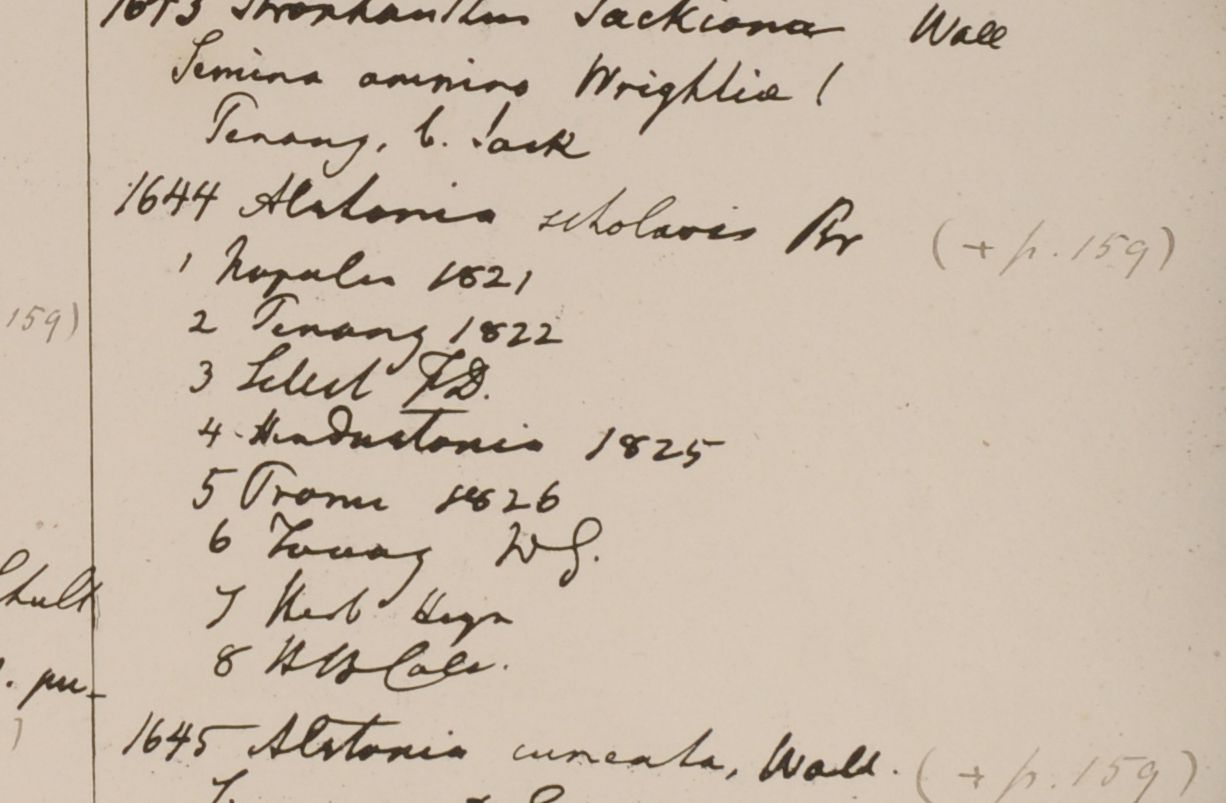 1643 Strophanthus Jackiana Wall
Semina omnino Wrightiæ!
Penang, G. Jack
1644 Alstonia scholaris Br (+ p. 159)
1 Napalia 1821
2 Penang 1822
159)
3 Silhet FD.
4 Hindustania 1825
5 Prome 1826
6 Tavoy WG.
Schult
7 Herb Heyn
8 HBCalc.
. pu-
)
1645 Alstonia cuneata, Wall. (+ p. 159)